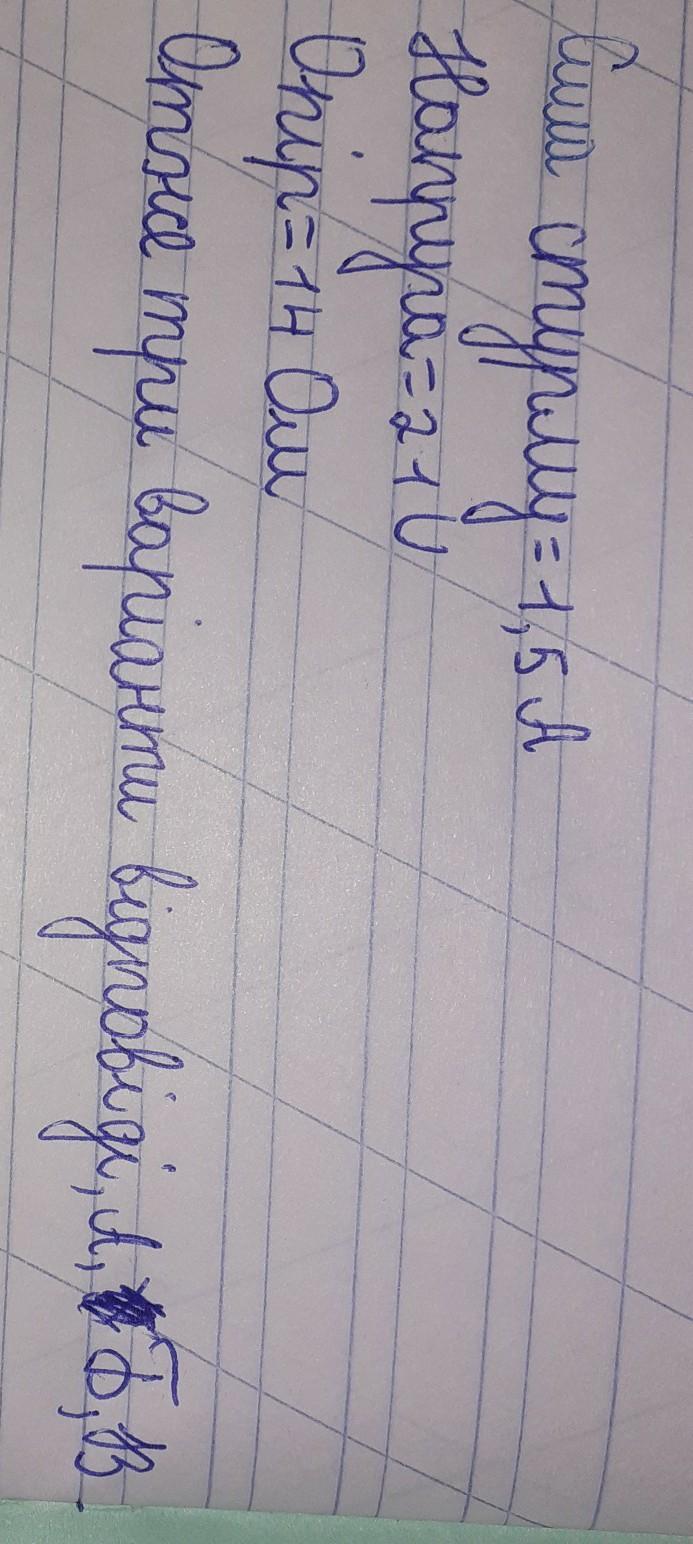 Сила струму = 1,5 А
Напруга = 21 V
Опір = 14 Ом
Отже три варіанти відповіді, А, Б, В.